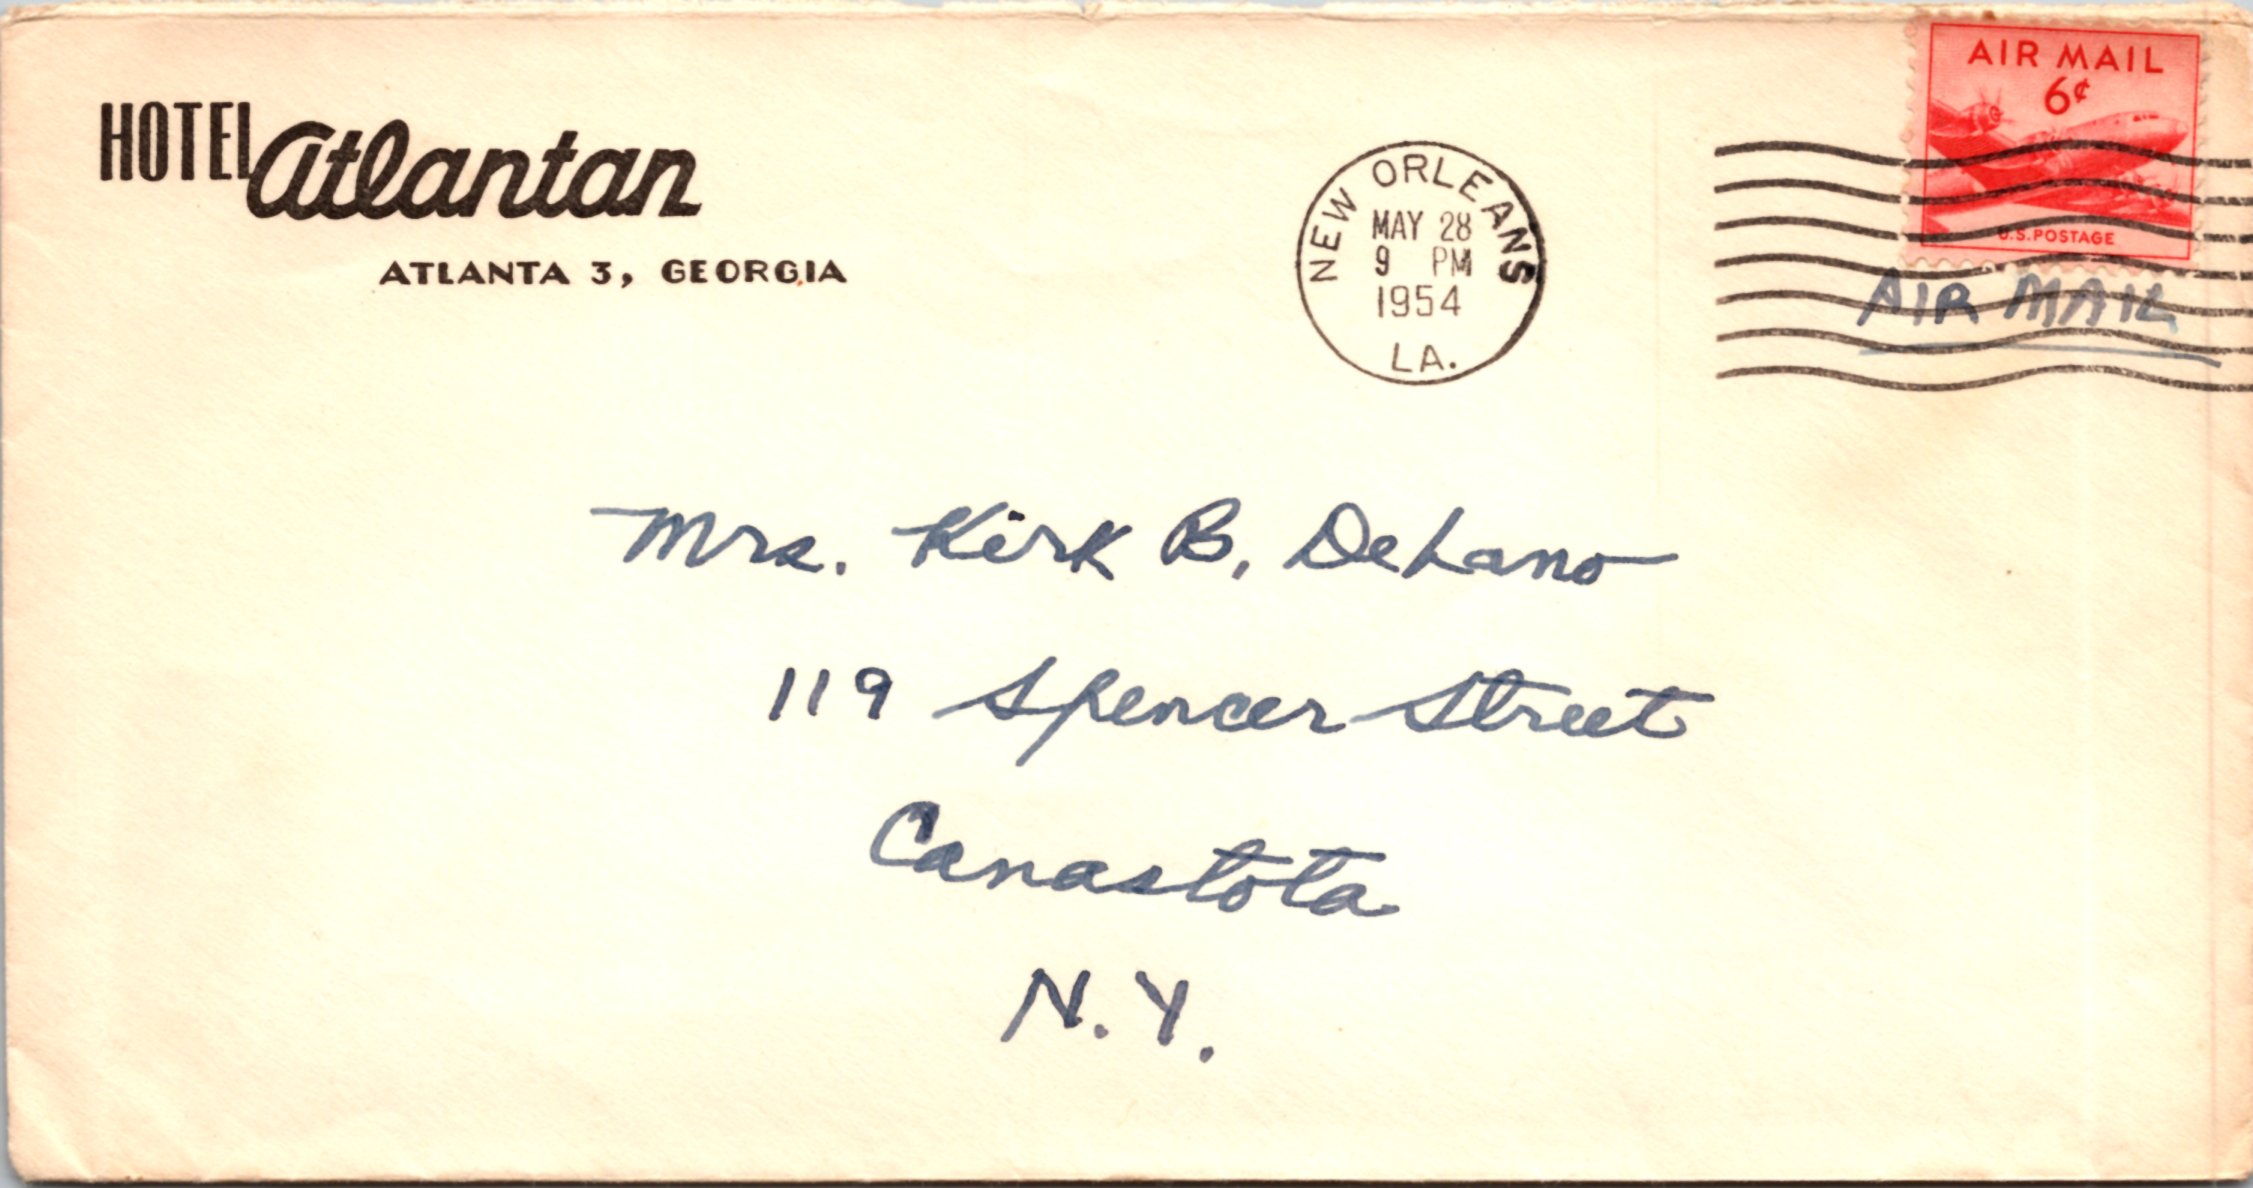 HOTEL Atlantan
ATLANTA 3, GEORGIA
NEW ORLEANS
MAY 28
9 PM
1954
LA.
AIR MAIL
6¢
U.S. POSTAGE
AIR MAIL
Mrs. Kirk B. DeLano
119 Spencer Street
Canastota
N.Y.